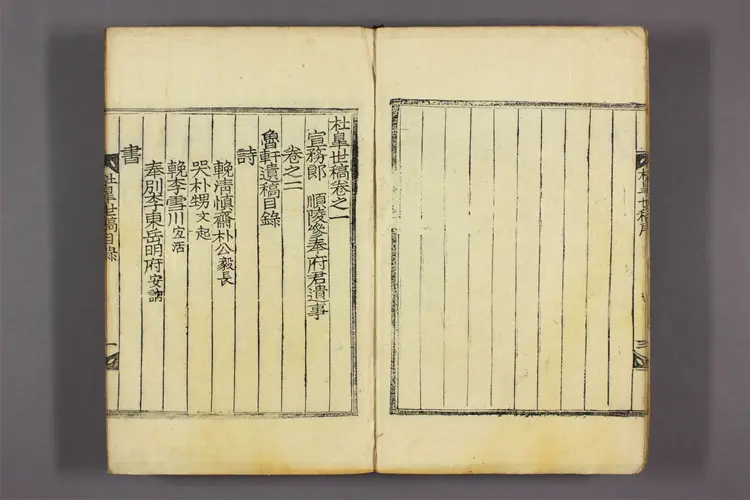 杜皐世稿序
二
杜皐世稿卷之一
宣務郎 順陵參奉府君遺事
卷之二
魯軒遺稿目錄
詩
輓淸愼齋朴公毅長
哭朴甥文起
輓李雪川宜活
奉別李東岳明府安訥
書
杜皐世稿目錄
一